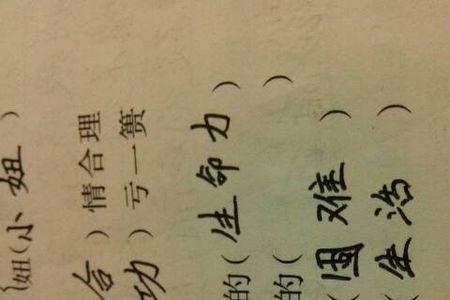 {妞(小妞)
合)情合理
功)亏一篑
的(生命力)
的( )
(困难)
(生活)